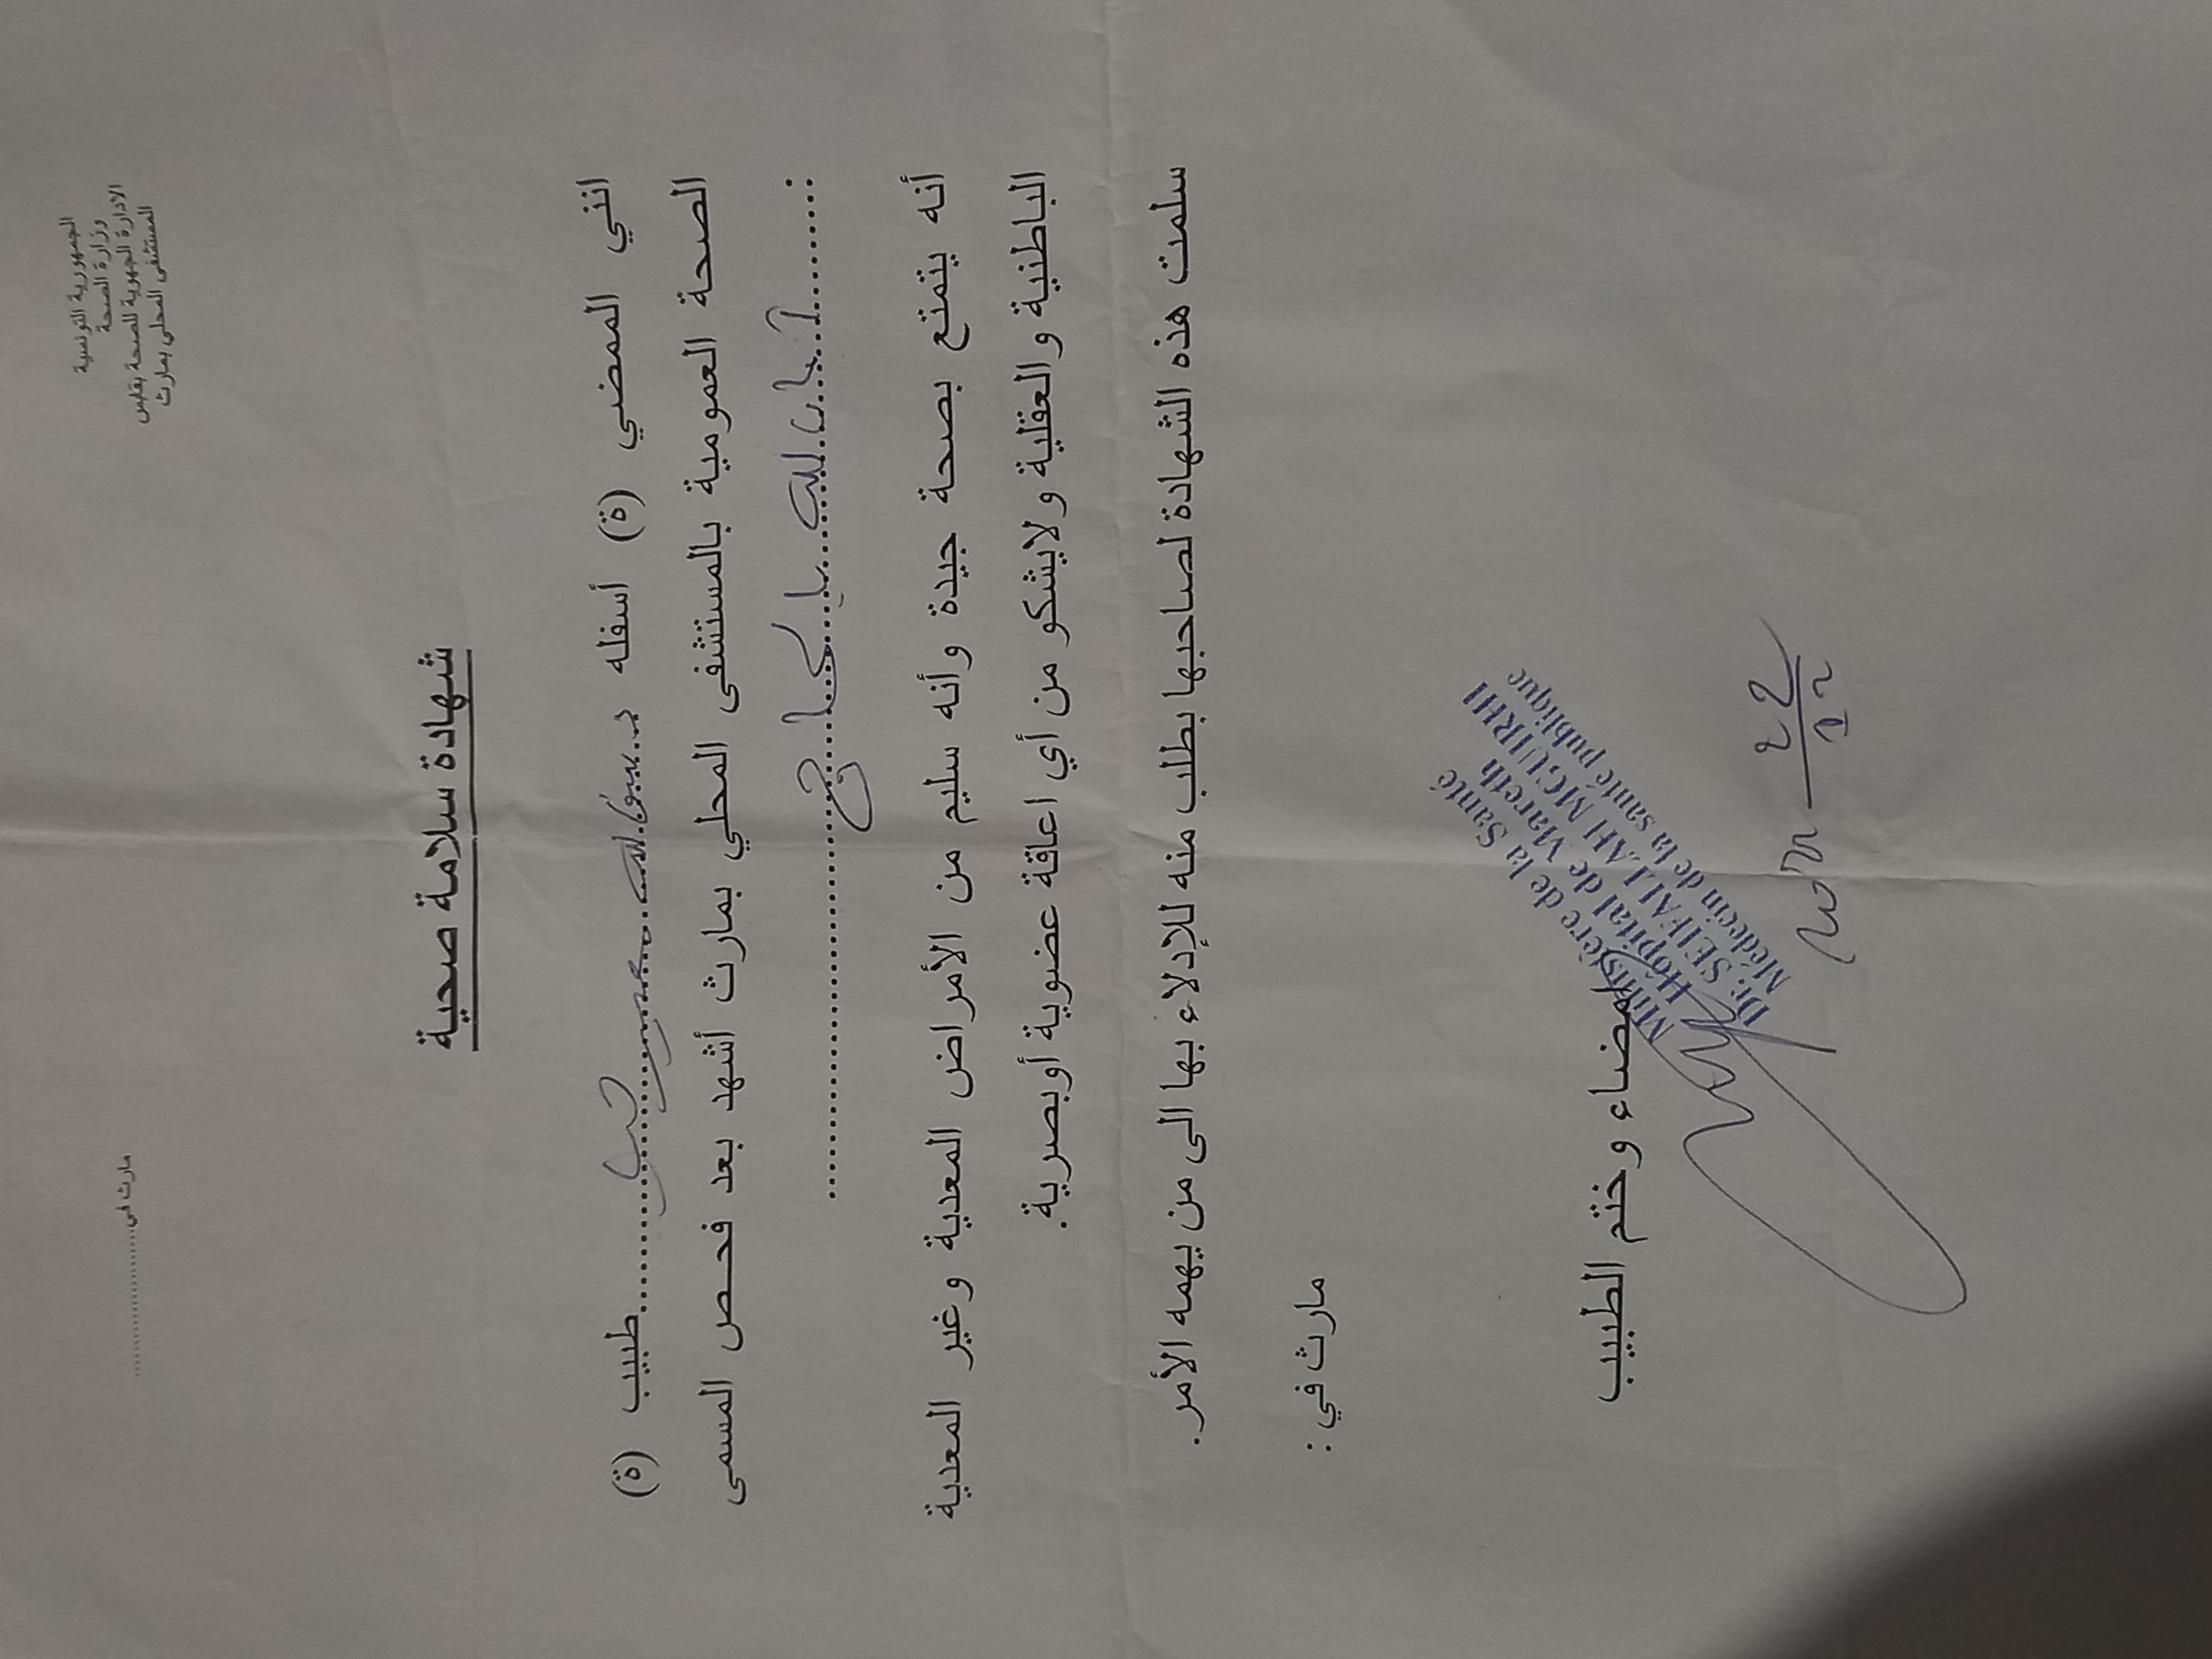 الجمهورية التونسية
وزارة الصحة
الادارة الجهوية للصحة بقابس
المستشفى المحلي بمارث
مارث في..............................
شهادة سلامة صحية
انني الممضي (ة) أسفله د. سيف الله مغيربي طبيب (ة)
الصحة العمومية بالمستشفى المحلي بمارث أشهد بعد فحص المسمى
أنه يتمتع بصحة جيدة وأنه سليم من الأمراض المعدية وغير المعدية
الباطنية والعقلية ولايشكو من أي اعاقة عضوية أوبصرية.
سلمت هذه الشهادة لصاحبها بطلب منه للإدلاء بها الى من يهمه الأمر.
مارث في :
امضاء وختم الطبيب
Ministère de la Santé
Hôpital de Mareth
Dr: SEIFALLAH MGUIRHI
Médecin de la santé publique